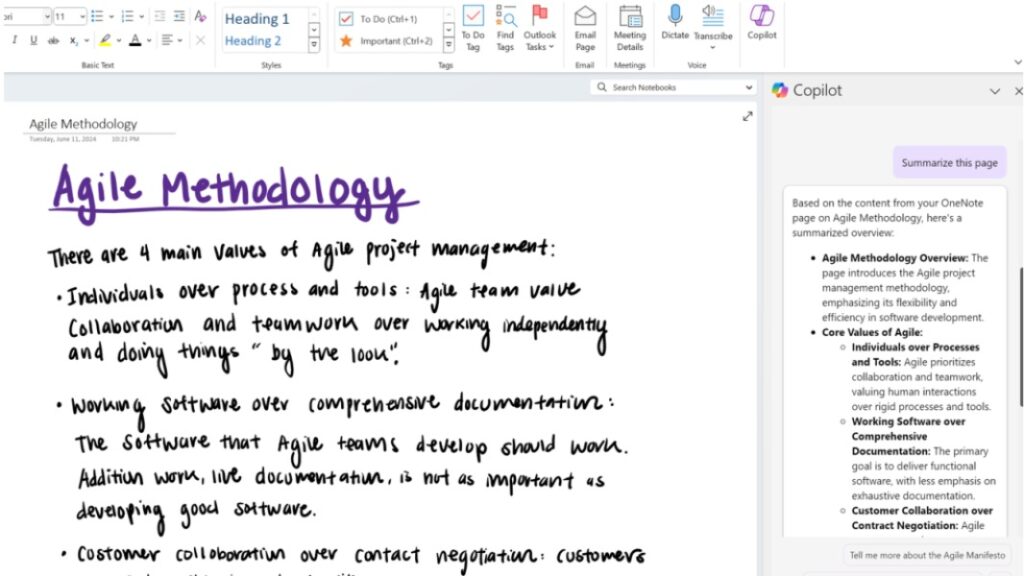 11
Heading 1
Heading 2
To Do (Ctrl+1)
Important (Ctrl+2)
To Do Tag
Find Tags
Outlook Tasks
Email Page
Meeting Details
Dictate
Transcribe
Copilot
Basic Text
Styles
Tags
Email
Meetings
Voice
Search Notebooks
Agile Methodology
Tuesday, June 11, 2024 10:21 PM
Agile Methodology
There are 4 main values of Agile project management:
• Individuals over process and tools: Agile team value
Collaboration and teamwork over working independently
and doing things "by the look".
• Working software over comprehensive documentation:
The software that Agile teams develop should work.
Addition work, live documentation, is not as important as
developing good software.
• Customer collaboration over contact negotiation: customers
Copilot
Summarize this page
Based on the content from your OneNote
page on Agile Methodology, here's a
summarized overview:
• Agile Methodology Overview: The
page introduces the Agile project
management methodology,
emphasizing its flexibility and
efficiency in software development.
• Core Values of Agile:
○ Individuals over Processes
and Tools: Agile prioritizes
collaboration and teamwork,
valuing human interactions
over rigid processes and tools.
○ Working Software over
Comprehensive
Documentation: The primary
goal is to deliver functional
software, with less emphasis on
exhaustive documentation.
○ Customer Collaboration over
Contract Negotiation: Agile
Tell me more about the Agile Manifesto